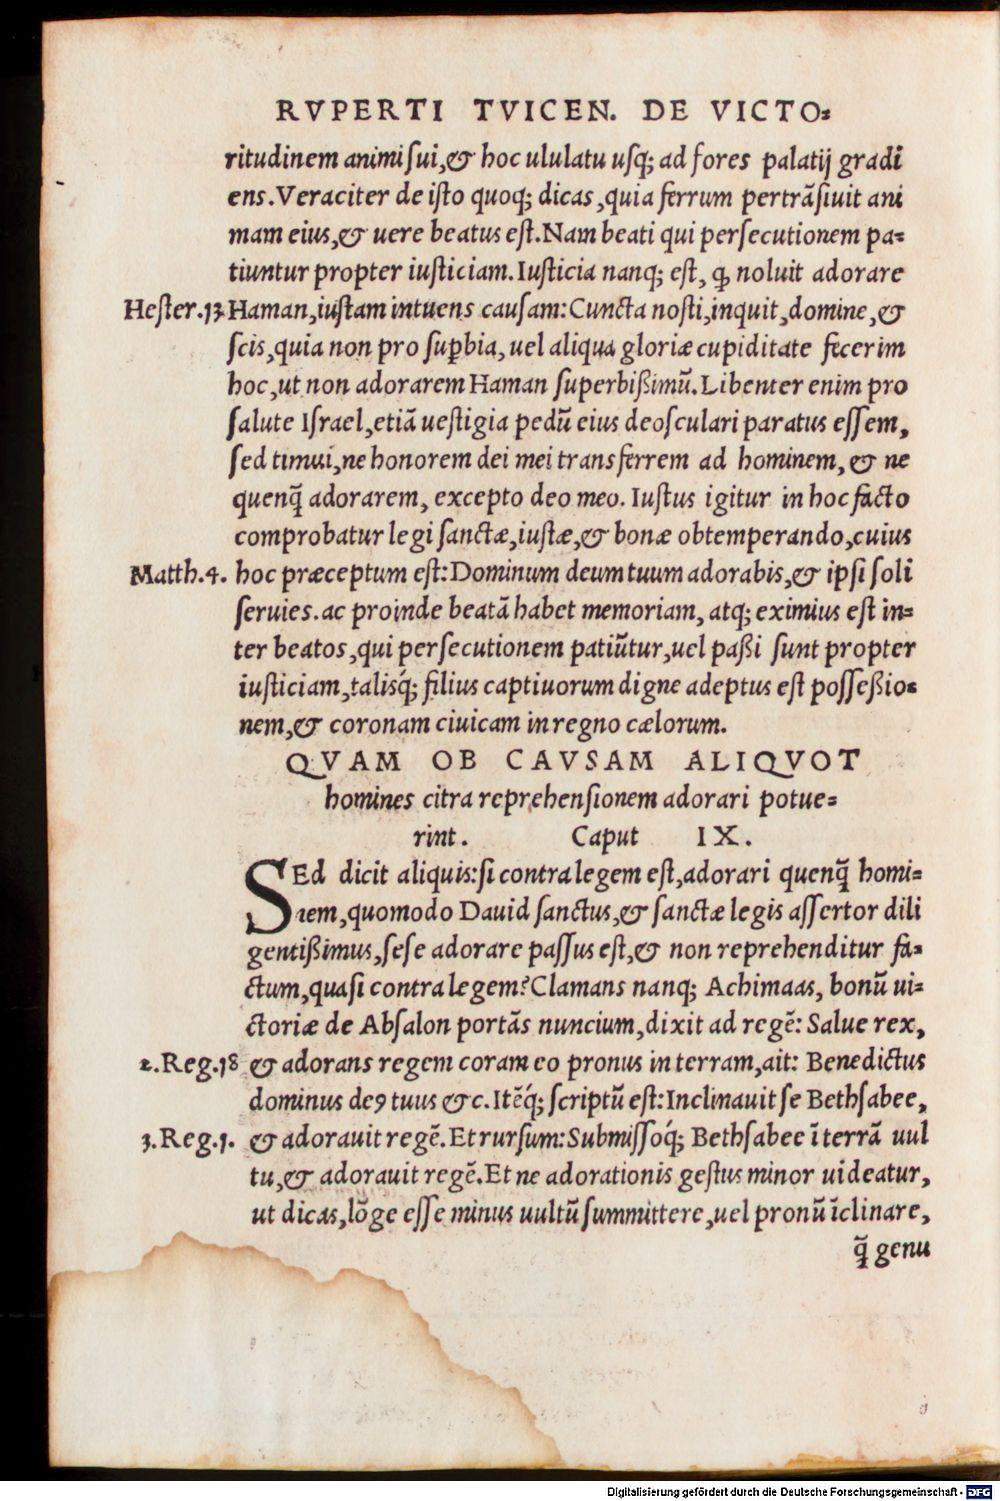 RVPERTI TVICEN. DE VICTO⸗
ritudinem animi ſui,& hoc ululatu uſq; ad fores palatij gradi
ens.Veraciter de iſto quoq; dicas,quia ferrum pertrãſiuit ani
mam eius,& uere beatus eſt.Nam beati qui perſecutionem pa⸗
tiuntur propter iuſticiam.Iuſticia nanq; est, ꝙ noluit adorare
Heſter.13 Haman,iuſtam intuens cauſam:Cuncta noſti,inquit,domine,&
ſcis,quia non pro ſuꝑbia,uel aliqua gloriæ cupiditate fecerim
hoc,ut non adorarem Haman ſuperbißimũ.Libenter enim pro
ſalute Iſrael,etiã ueſtigia pedũ eius deoſculari paratus eſſem,
ſed timui,ne honorem dei mei transferrem ad hominem,& ne
quenq̃ adorarem, excepto deo meo. Iuſtus igitur in hoc facto
comprobatur legi ſanctæ,iuſtæ,& bonæ obtemperando,cuius
Matth.4. hoc præceptum eſt:Dominum deum tuum adorabis,& ipſi ſoli
ſeruies.ac proinde beatã habet memoriam, atq; eximius eſt in⸗
ter beatos,qui perſecutionem patiũtur,uel paßi ſunt propter
iuſticiam,talisq́; filius captiuorum digne adeptus eſt poſſeßio⸗
nem,& coronam ciuicam in regno cælorum.
QVAM OB CAVSAM ALIQVOT
homines citra reprehenſionem adorari potue⸗
rint. Caput IX.
SEd dicit aliquis:ſi contra legem eſt,adorari quenq̃ homi⸗
nem,quomodo Dauid ſanctus,& ſanctæ legis aſſertor dili
gentißimus,ſeſe adorare paſſus eſt,& non reprehenditur fa⸗
ctum,quaſi contra legem?Clamans nanq; Achimaas, bonũ ui⸗
ctoriæ de Abſalon portãs nuncium,dixit ad regẽ: Salue rex,
2.Reg.18 & adorans regem coram eo pronus in terram,ait: Benedictus
dominus deꝰ tuus &c.Itẽq́; ſcriptũ eſt:Inclinauit ſe Bethſabee,
3.Reg.1. & adorauit regẽ.Et rurſum:Submiſſoq́; Bethſabee ĩ terrã uul
tu,& adorauit regẽ.Et ne adorationis geſtus minor uideatur,
ut dicas,lõge eſſe minus uultũ ſummittere,uel pronũ ĩclinare,
q̃ genu
Digitalisierung gefördert durch die Deutsche Forschungsgemeinschaft - DFG